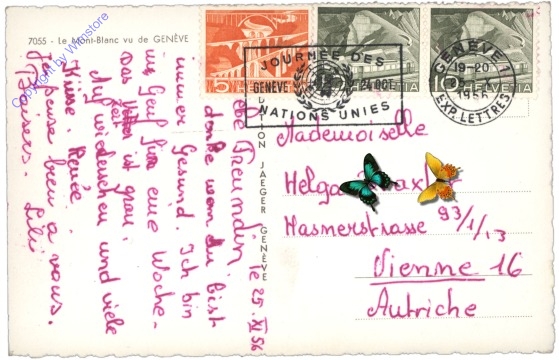 7055 - Le Mont-Blanc vu de GENÈVE
Copyright by W
store
HELVETIA
HELVETIA
5
10
10
JOURNÉE DES
GENÈVE
24 OCT
NATIONS UNIES
GENÈVE 1
19-20
1956
EXP. LETTRES
JAEGER GENÈVE
le 25. XI 56
Freundin,
danke wann du bist
immer Gesund. Ich bin
in Genf für eine Woche.
Das ist grau.
Auf wiedersehen und viele
Küsse. Renée.
Je pense bien à vous.
Baisers. Lili
Mademoiselle
Helga
Hasnerstrasse 93/1/13
Vienne 16
Autriche